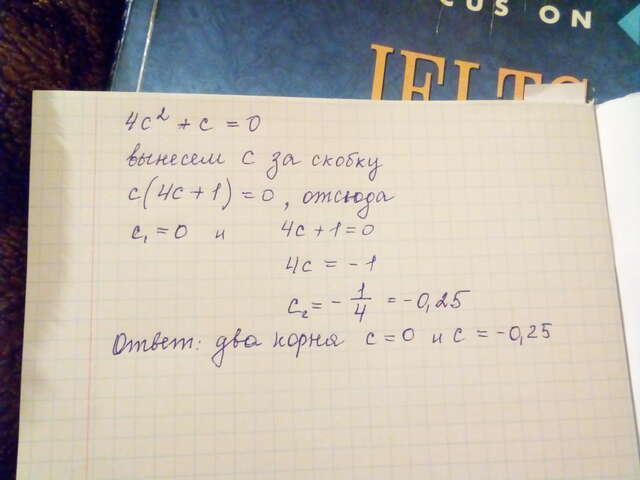 CUS ON
IELTS
4c² + c = 0
вынесем c за скобку
c(4c+1) = 0, отсюда
c₁ = 0 и 4c + 1 = 0
4c = -1
c₂ = - 1/4 = -0,25
Ответ: два корня c = 0 и c = -0,25